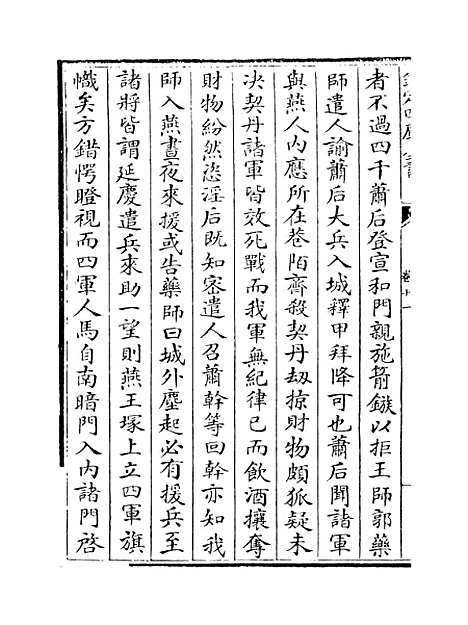 欽定四庫全書
卷十一
者不過四千蕭后登宣和門親施箭鏃以拒王師郭藥
師遣人諭蕭后大兵入城釋甲拜降可也蕭后聞諸軍
與燕人内應所在巷陌齊殺契丹刼掠財物頗狐疑未
决契丹諸軍皆效死戰而我軍無紀律已而飲酒攘奪
財物紛然恣淫后既知密遣人召蕭幹等回幹亦知我
師入燕晝夜來援或告藥師曰城外塵起必有援兵至
諸將皆謂延慶遣兵來助一望則燕王塚上立四軍旗
幟矣方錯愕瞪視而四軍人馬自南暗門入内諸門啓